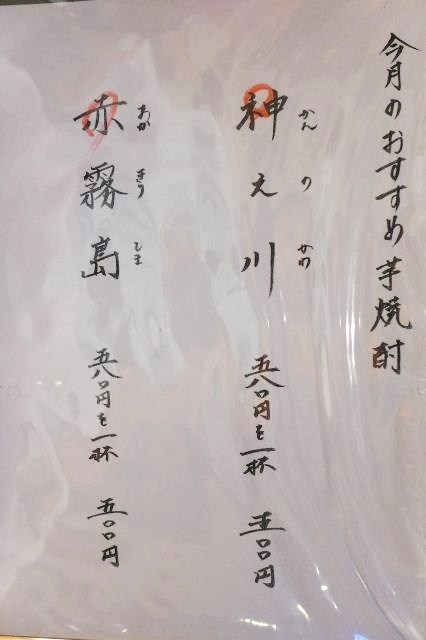 今月のおすすめ芋焼酎
神え川
かんのかわ
五八〇円を一杯 五〇〇円
赤霧島
あかきりしま
五八〇円を一杯 五〇〇円